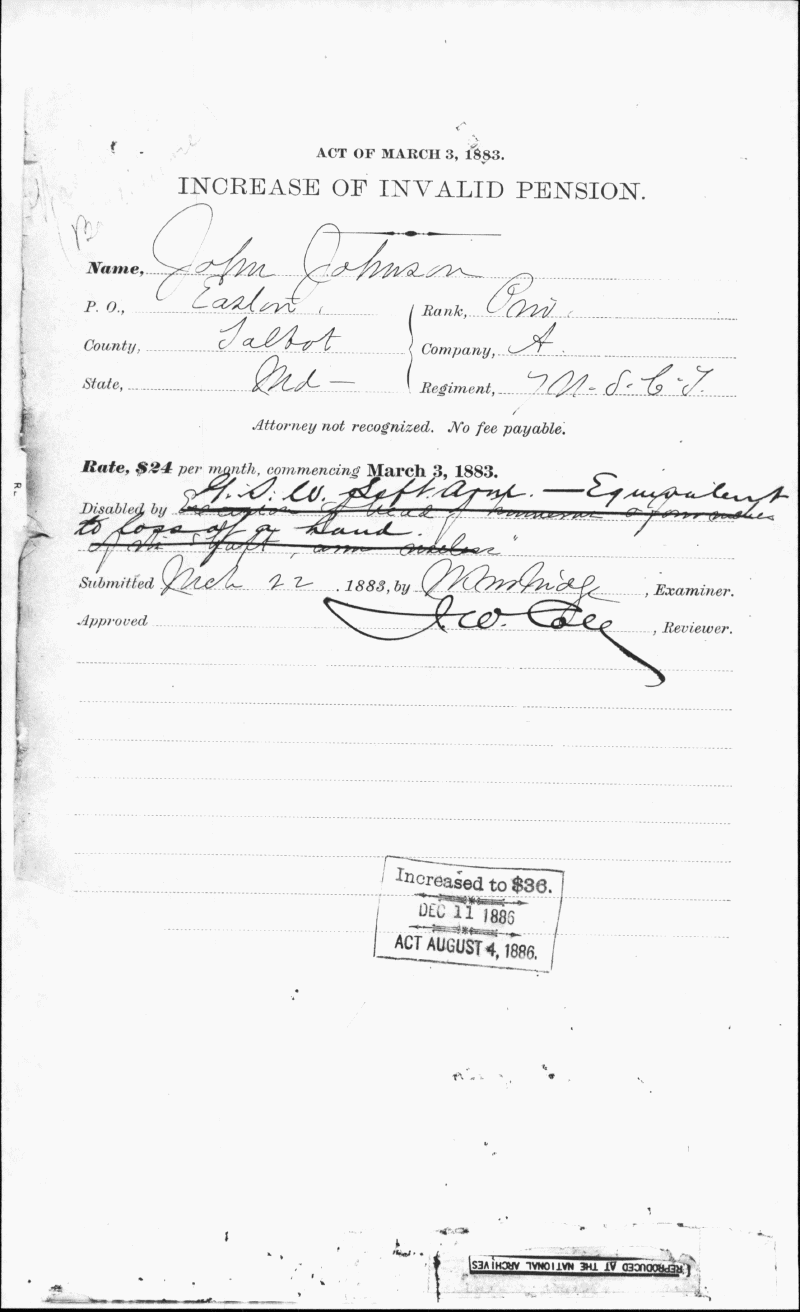 ACT OF MARCH 3, 1883.
INCREASE OF INVALID PENSION.
Name, John Johnson
P. O., Easton,
Rank, Priv.
County, Talbot
Company, A.
State, Md —
Regiment, 7 U. S. C. T.
Attorney not recognized. No fee payable.
Rate, $24 per month, commencing March 3, 1883.
G. S. W. Left Arm. — Equivalent
Disabled by head of humerus
to loss of a hand.
left, arm useless"
Submitted Mch 22, 1883, by , Examiner.
Approved J. W. , Reviewer.
Increased to $36.
DEC 11 1886
ACT AUGUST 4, 1886.
REPRODUCED AT THE NATIONAL ARCHIVES